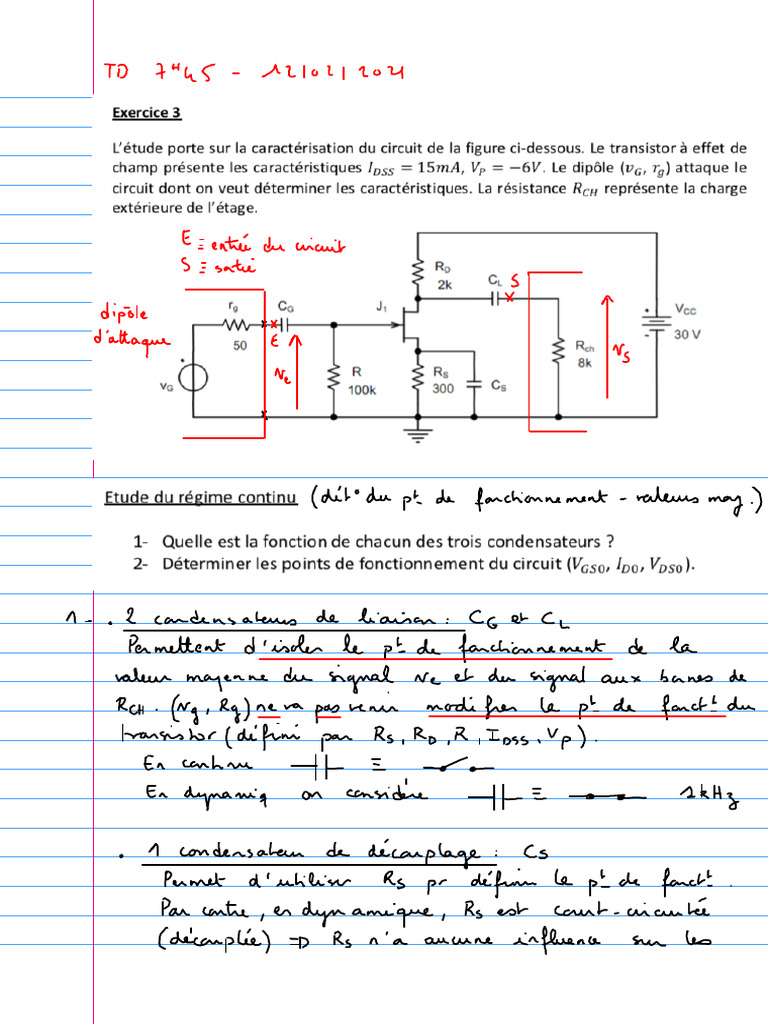 TD 7H45 - 12/02/2021
Exercice 3
L'étude porte sur la caractérisation du circuit de la figure ci-dessous. Le transistor à effet de
champ présente les caractéristiques I_DSS = 15mA, V_P = −6V. Le dipôle (v_G, r_g) attaque le
circuit dont on veut déterminer les caractéristiques. La résistance R_CH représente la charge
extérieure de l'étage.
E ≡ entrée du circuit
S ≡ sortie
dipôle
d'attaque
r_g
50
v_G
C_G
E
v_e
R
100k
J_1
R_D
2k
R_S
300
C_S
C_L
S
R_ch
8k
v_s
V_CC
30 V
Etude du régime continu (dét° du pt de fonctionnement - valeurs moy.)
1- Quelle est la fonction de chacun des trois condensateurs ?
2- Déterminer les points de fonctionnement du circuit (V_GS0, I_D0, V_DS0).
1- . 2 condensateurs de liaison : C_G et C_L
Permettent d'isoler le pt de fonctionnement de la
valeur moyenne du signal v_e et du signal aux bornes de
R_CH. (v_g, R_g) ne va pas venir modifier le pt de fonctt du
transistor (défini par R_S, R_D, R, I_DSS, V_P).
En continu ≡
En dynamiq on considère ≡ 1kHz
. 1 condensateur de découplage : C_S
Permet d'utiliser R_S pr définir le pt de fonctt.
Par contre, en dynamique, R_S est court-circuitée
(découplée) => R_S n'a aucune influence sur les